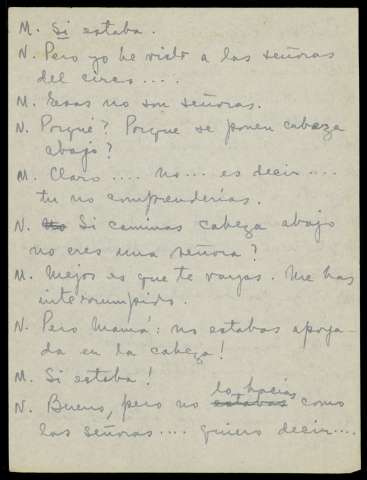 M. Si estaba.
N. Pero yo he visto a las señoras
del circo....
M. Esas no son señoras.
N. Porqué? Porque se ponen cabeza
abajo?
M. Claro.... no... es decir....
tu no comprenderías.
N. Si caminas cabeza abajo
no eres una señora?
M. Mejor es que te vayas. Me has
interrumpido.
N. Pero Mamá: no estabas apoya-
da en la cabeza!
M. Si estaba!
lo hacías
N. Bueno, pero no estabas como
las señoras.... quiero decir....